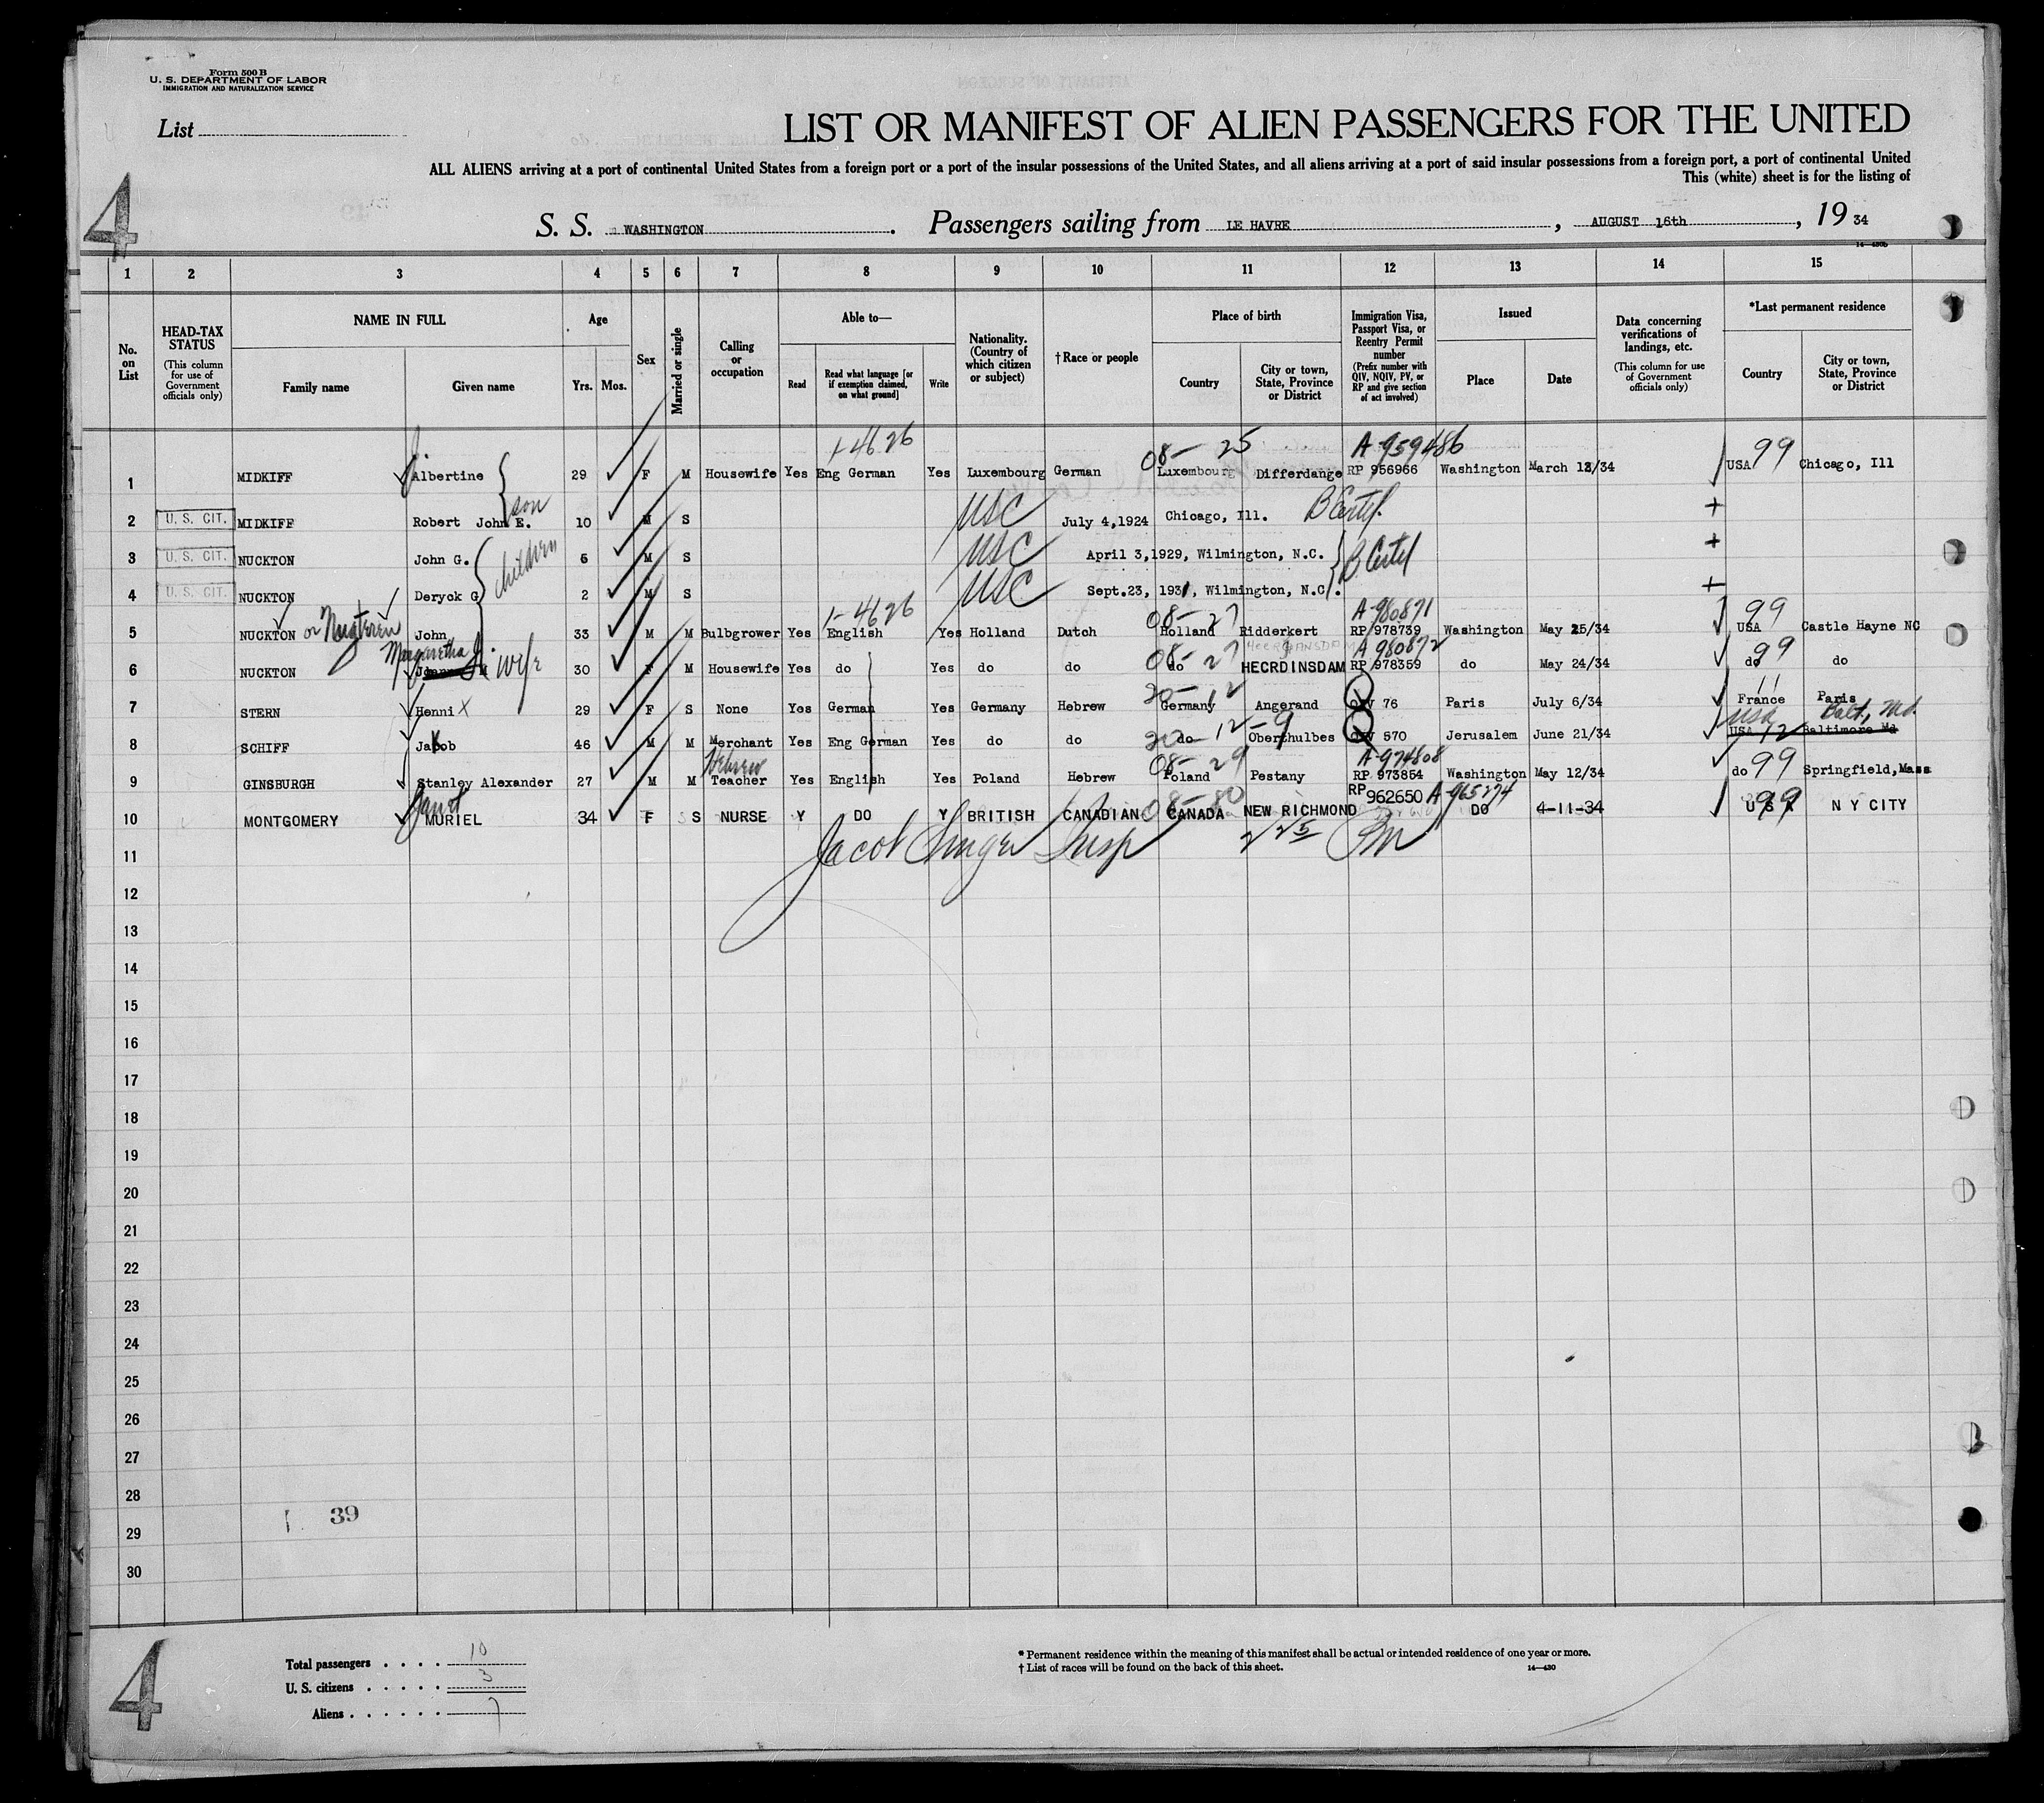 Form 500 B
U. S. DEPARTMENT OF LABOR
IMMIGRATION AND NATURALIZATION SERVICE
List
LIST OR MANIFEST OF ALIEN PASSENGERS FOR THE UNITED
ALL ALIENS arriving at a port of continental United States from a foreign port or a port of the insular possessions of the United States, and all aliens arriving at a port of said insular possessions from a foreign port, a port of continental United
This (white) sheet is for the listing of
4
S. S. WASHINGTON. Passengers sailing from LE HAVRE, AUGUST 16th, 19 34
14-430b
1 2 3 4 5 6 7 8 9 10 11 12 13 14 15
No. on List
HEAD-TAX STATUS (This column for use of Government officials only)
NAME IN FULL
Family name Given name
Age
Yrs. Mos.
Sex
Married or single
Calling or occupation
Able to—
Read Read what language [or if exemption claimed, on what ground] Write
Nationality. (Country of which citizen or subject)
† Race or people
Place of birth
Country City or town, State, Province or District
Immigration Visa, Passport Visa, or Reentry Permit number (Prefix number with QIV, NQIV, PV, or RP and give section of act involved)
Issued
Place Date
Data concerning verifications of landings, etc. (This column for use of Government officials only)
*Last permanent residence
Country City or town, State, Province or District
1-4626 08- 25 A-959486 99
1 MIDKIFF Albertine 29 F M Housewife Yes Eng German Yes Luxembourg German Luxembourg Differdange RP 956966 Washington March 12/34 USA Chicago, Ill
son
2 U. S. CIT. MIDKIFF Robert John E. 10 M S USC July 4,1924 Chicago, Ill. B Certf.
3 U. S. CIT. NUCKTON John G. 6 M S USC April 3,1929, Wilmington, N.C. B. Certf
children
4 U. S. CIT. NUCKTON Deryck G 2 M S USC Sept.23, 1931, Wilmington, N.C.
1-4626 08-27 A-980871 99
5 NUCKTON or John 33 M M Bulbgrower Yes English Yes Holland Dutch Holland Ridderkert RP 978739 Washington May 25/34 USA Castle Hayne NC
Margaretha J. 08-27 A 980872 99
6 NUCKTON wife 30 F M Housewife Yes do Yes do do do HECRDINSDAM RP 978359 do May 24/34 do do
20-12 11
7 STERN Henni X 29 F S None Yes German Yes Germany Hebrew Germany Angerand 76 Paris July 6/34 France Paris
20 12-9 USA Balt, Md.
8 SCHIFF Jakob 46 M M Merchant Yes Eng German Yes do do do Oberthulbes 570 Jerusalem June 21/34 USA 12 Baltimore Md
Hebrew 08-29 A-974808 99
9 GINSBURGH Stanley Alexander 27 M M Teacher Yes English Yes Poland Hebrew Poland Pestany RP 973854 Washington May 12/34 do Springfield, Mass
Janet 08-80 RP 962650 A-965274 99
10 MONTGOMERY MURIEL 34 F S NURSE Y DO Y BRITISH CANADIAN CANADA NEW RICHMOND DO 4-11-34 U S A N Y CITY
Jacob Insp
11
12
13
14
15
16
17
18
19
20
21
22
23
24
25
26
27
28
39
29
30
4
Total passengers . . . . 10
U. S. citizens . . . . . 3
Aliens . . . . . . 7
* Permanent residence within the meaning of this manifest shall be actual or intended residence of one year or more.
† List of races will be found on the back of this sheet. 14-430